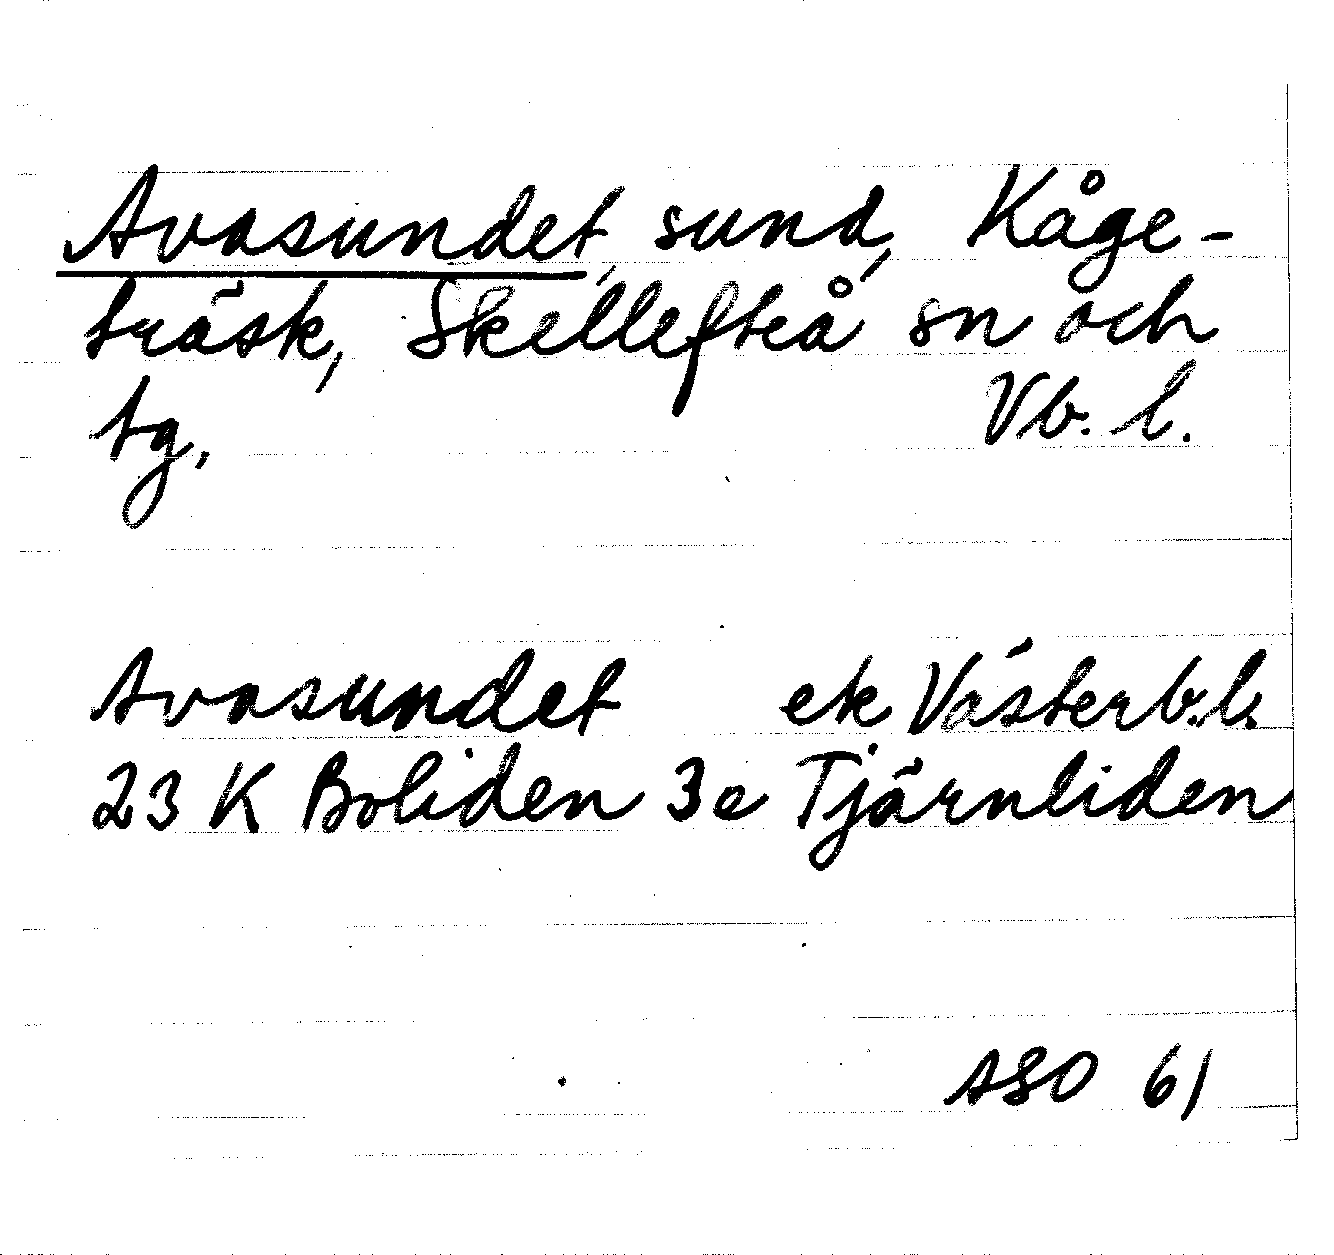 Avasundet, sund, Kåge-
träsk, Skellefteå sn och
tg. Vb. l.
Avasundet ek Västerb. l.
23 K Boliden 3e Tjärnliden
ASO 61